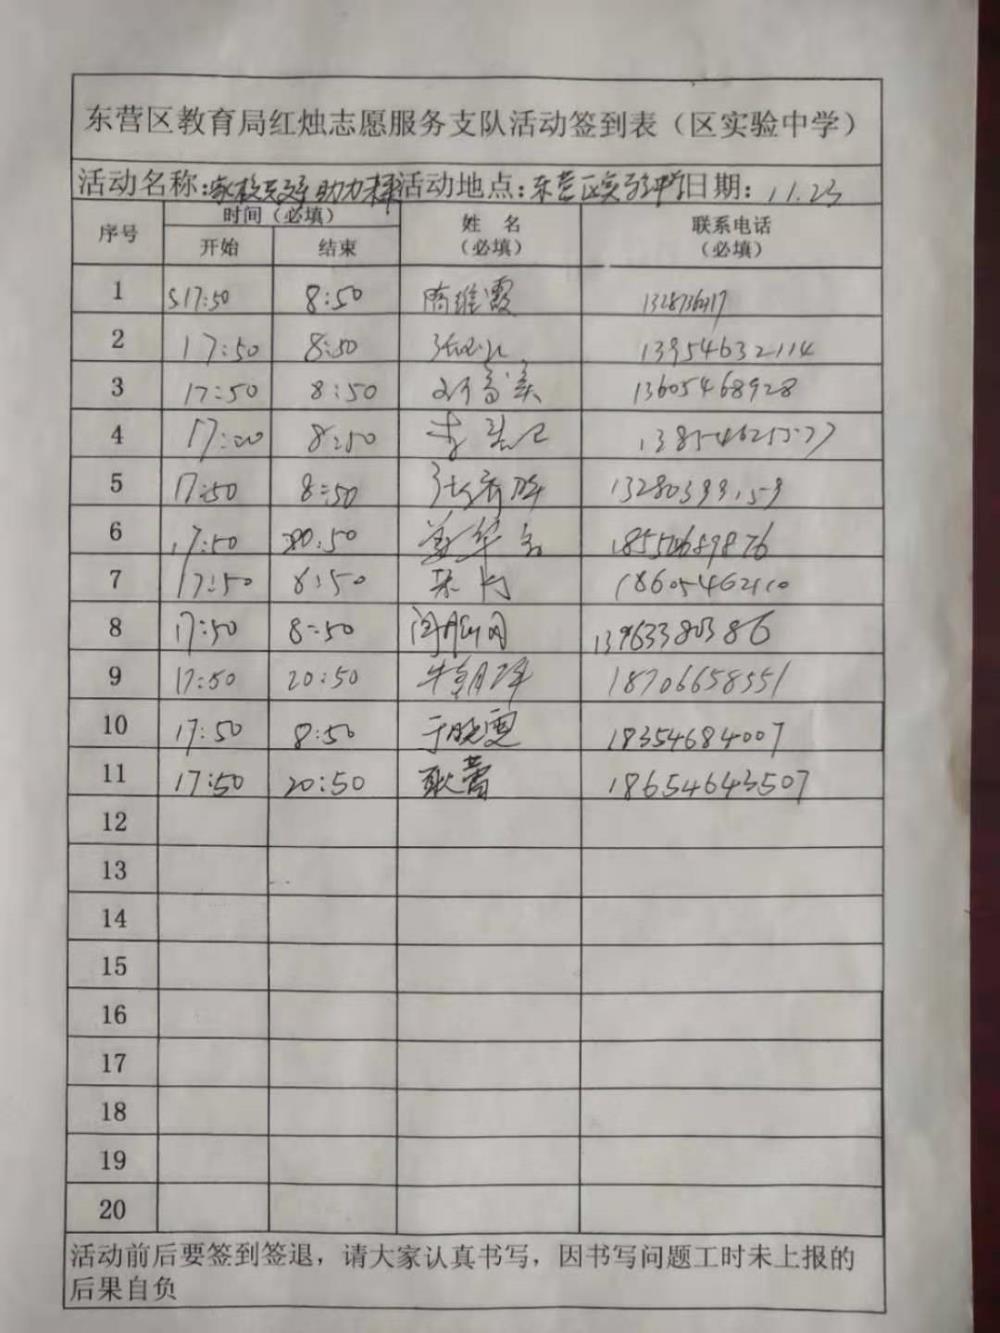 东营区教育局红烛志愿服务支队活动签到表（区实验中学）
活动名称: 助力 活动地点: 东营区实验中学 日期: 11.23
序号 时间（必填） 姓 名（必填） 联系电话（必填）
开始 结束
1 17:50 8:50 隋维霞
2 17:50 8:50 13954632114
3 17:50 8:50 13605468928
4 8:50
5 17:50 8:50 13280399159
6 17:50 20:50
7 17:50 8:50 18605462110
8 17:50 8:50 13963380386
9 17:50 20:50 18706658551
10 17:50 8:50 于晓雯 18354684007
11 17:50 20:50 耿蕾 18654643507
12
13
14
15
16
17
18
19
20
活动前后要签到签退，请大家认真书写，因书写问题工时未上报的
后果自负